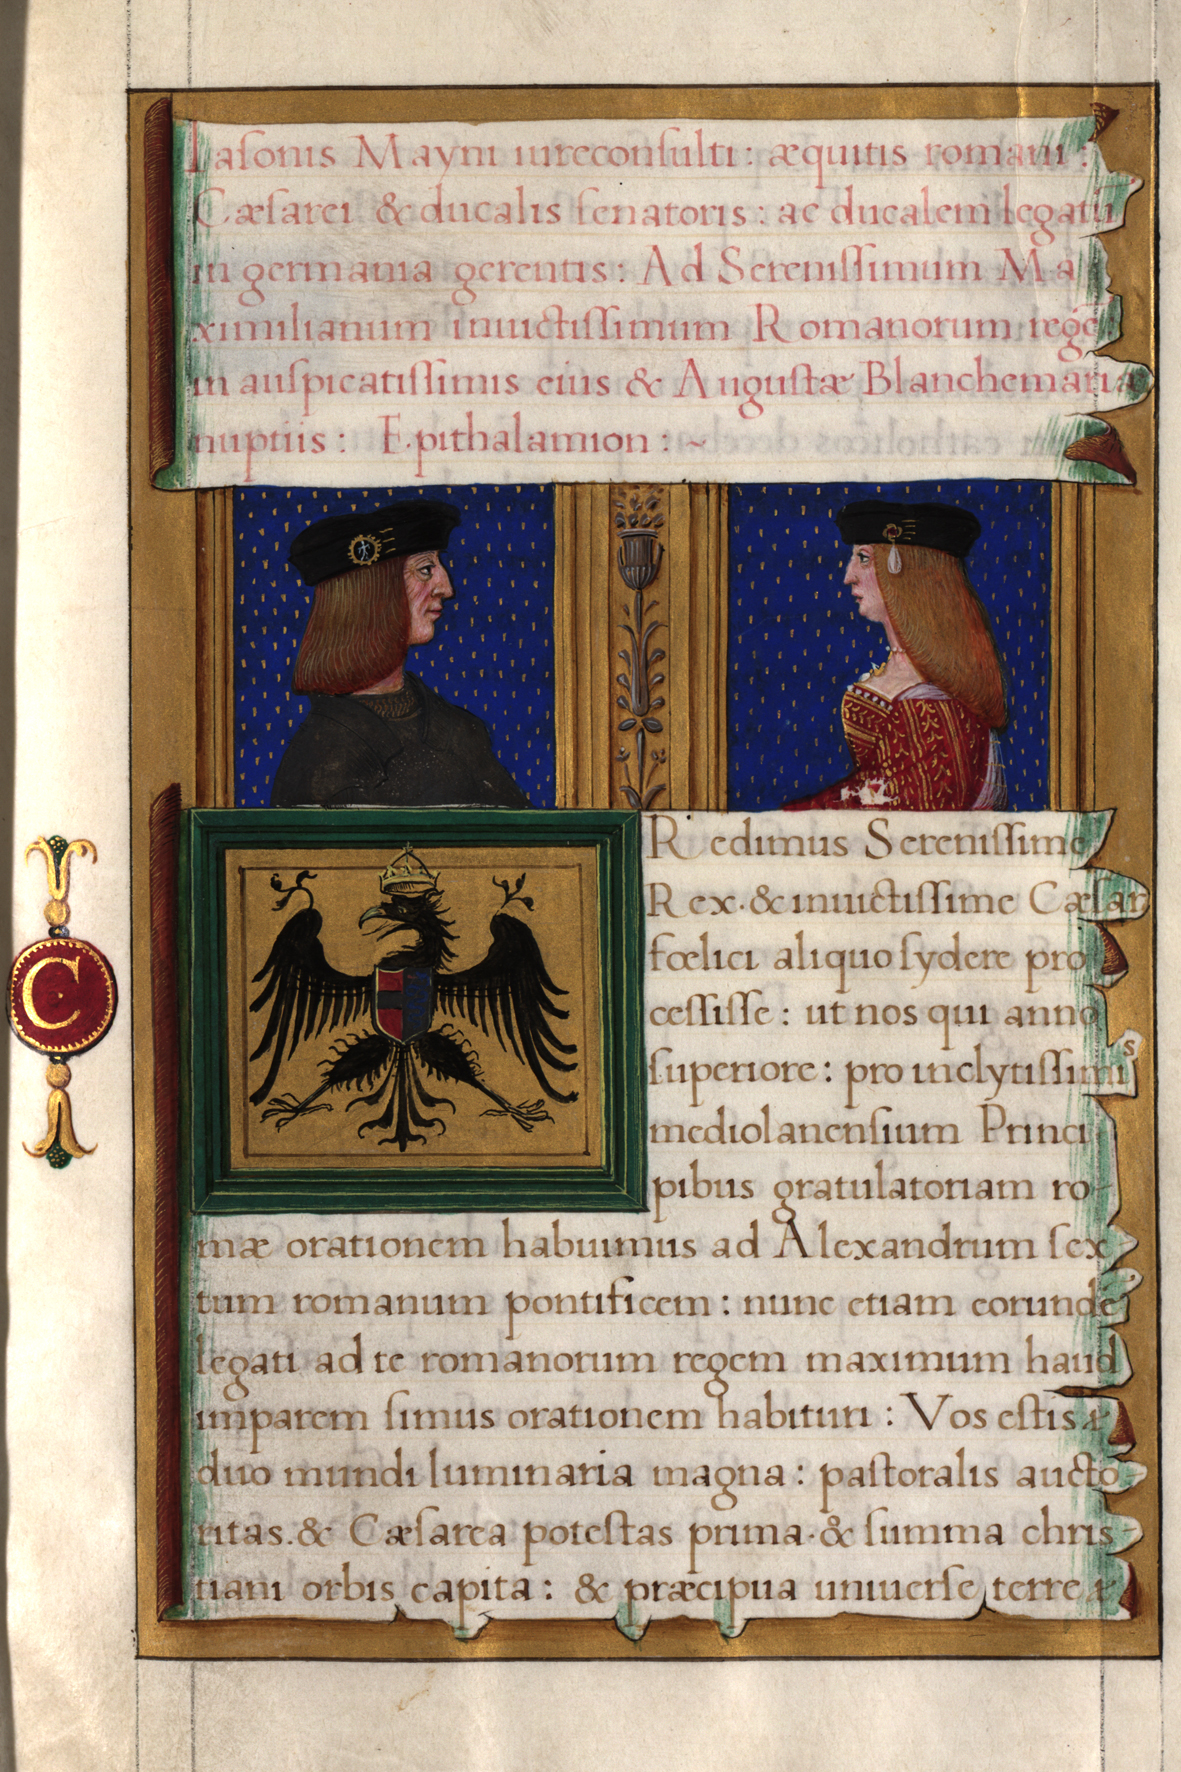 Iasonis Mayni iureconsulti: æquitis romani:
Cæsarei & ducalis senatoris: ac ducalem legatū
in germania gerentis: Ad Serenissimum Ma
ximilianum inuictissimum Romanorum regē:
in auspicatissimis eius & Augustæ Blanchemariæ
nuptiis: Epithalamion: ~
C
Redimus Serenissime
Rex. & inuictissime Cæsar
fœlici aliquo sydere pro
cessisse: ut nos qui anno
superiore: pro inclytissimis
mediolanensium Princi
pibus gratulatoriam ro
mæ orationem habuimus ad Alexandrum sex
tum romanum pontificem: nunc etiam eorundē
legati ad te romanorum regem maximum haud
imparem simus orationem habituri: Vos estis
duo mundi luminaria magna: pastoralis aucto
ritas. & Cæsarea potestas prima. & summa chris
tiani orbis capita: & præcipua uniuerse terre